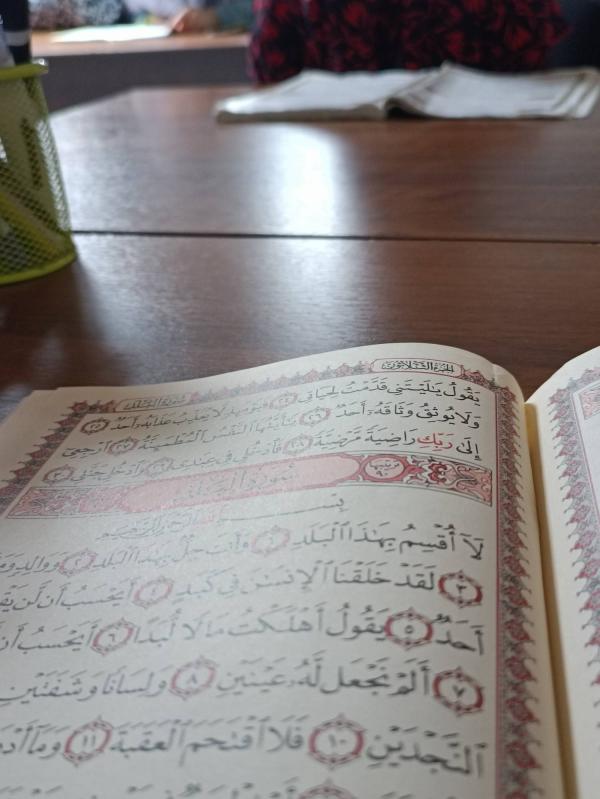 الجزء الثلاثون
سورة الفجر
يَقُولُ يَٰلَيْتَنِى قَدَّمْتُ لِحَيَاتِى ٢٤ فَيَوْمَئِذٍ لَّا يُعَذِّبُ عَذَابَهُۥٓ أَحَدٌ ٢٥
وَلَا يُوثِقُ وَثَاقَهُۥٓ أَحَدٌ ٢٦ يَٰٓأَيَّتُهَا ٱلنَّفْسُ ٱلْمُطْمَئِنَّةُ ٢٧ ٱرْجِعِىٓ
إِلَىٰ رَبِّكِ رَاضِيَةً مَّرْضِيَّةً ٢٨ فَٱدْخُلِى فِى عِبَٰدِى ٢٩ وَٱدْخُلِى جَنَّتِى ٣٠
سورة البلد
بِسْمِ ٱللَّهِ ٱلرَّحْمَٰنِ ٱلرَّحِيمِ
لَآ أُقْسِمُ بِهَٰذَا ٱلْبَلَدِ ١ وَأَنتَ حِلٌّۢ بِهَٰذَا ٱلْبَلَدِ ٢ وَوَالِدٍ
٣ لَقَدْ خَلَقْنَا ٱلْإِنسَٰنَ فِى كَبَدٍ ٤ أَيَحْسَبُ أَن لَّن
أَحَدٌ ٥ يَقُولُ أَهْلَكْتُ مَالًا لُّبَدًا ٦ أَيَحْسَبُ أَن
٧ أَلَمْ نَجْعَل لَّهُۥ عَيْنَيْنِ ٨ وَلِسَانًا وَشَفَتَيْنِ
ٱلنَّجْدَيْنِ ١٠ فَلَا ٱقْتَحَمَ ٱلْعَقَبَةَ ١١ وَمَآ